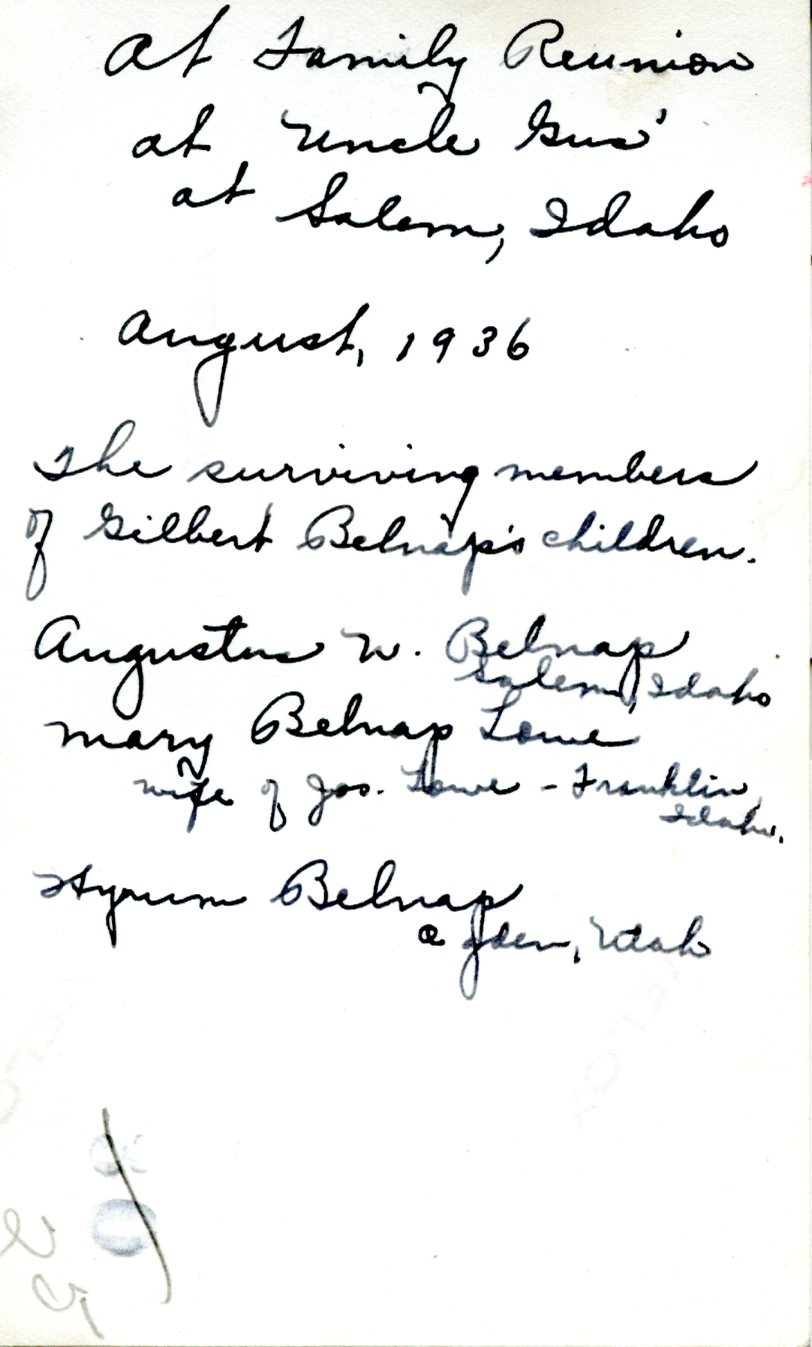 At Family Reunion
at Uncle Gus'
at Salem, Idaho
August, 1936
The surviving members
of Gilbert Belnap's children.
Augustus W. Belnap
Salem, Idaho
Mary Belnap Lowe
wife of Jos. Lowe - Franklin,
Idaho.
Hyrum Belnap
Ogden, Utah